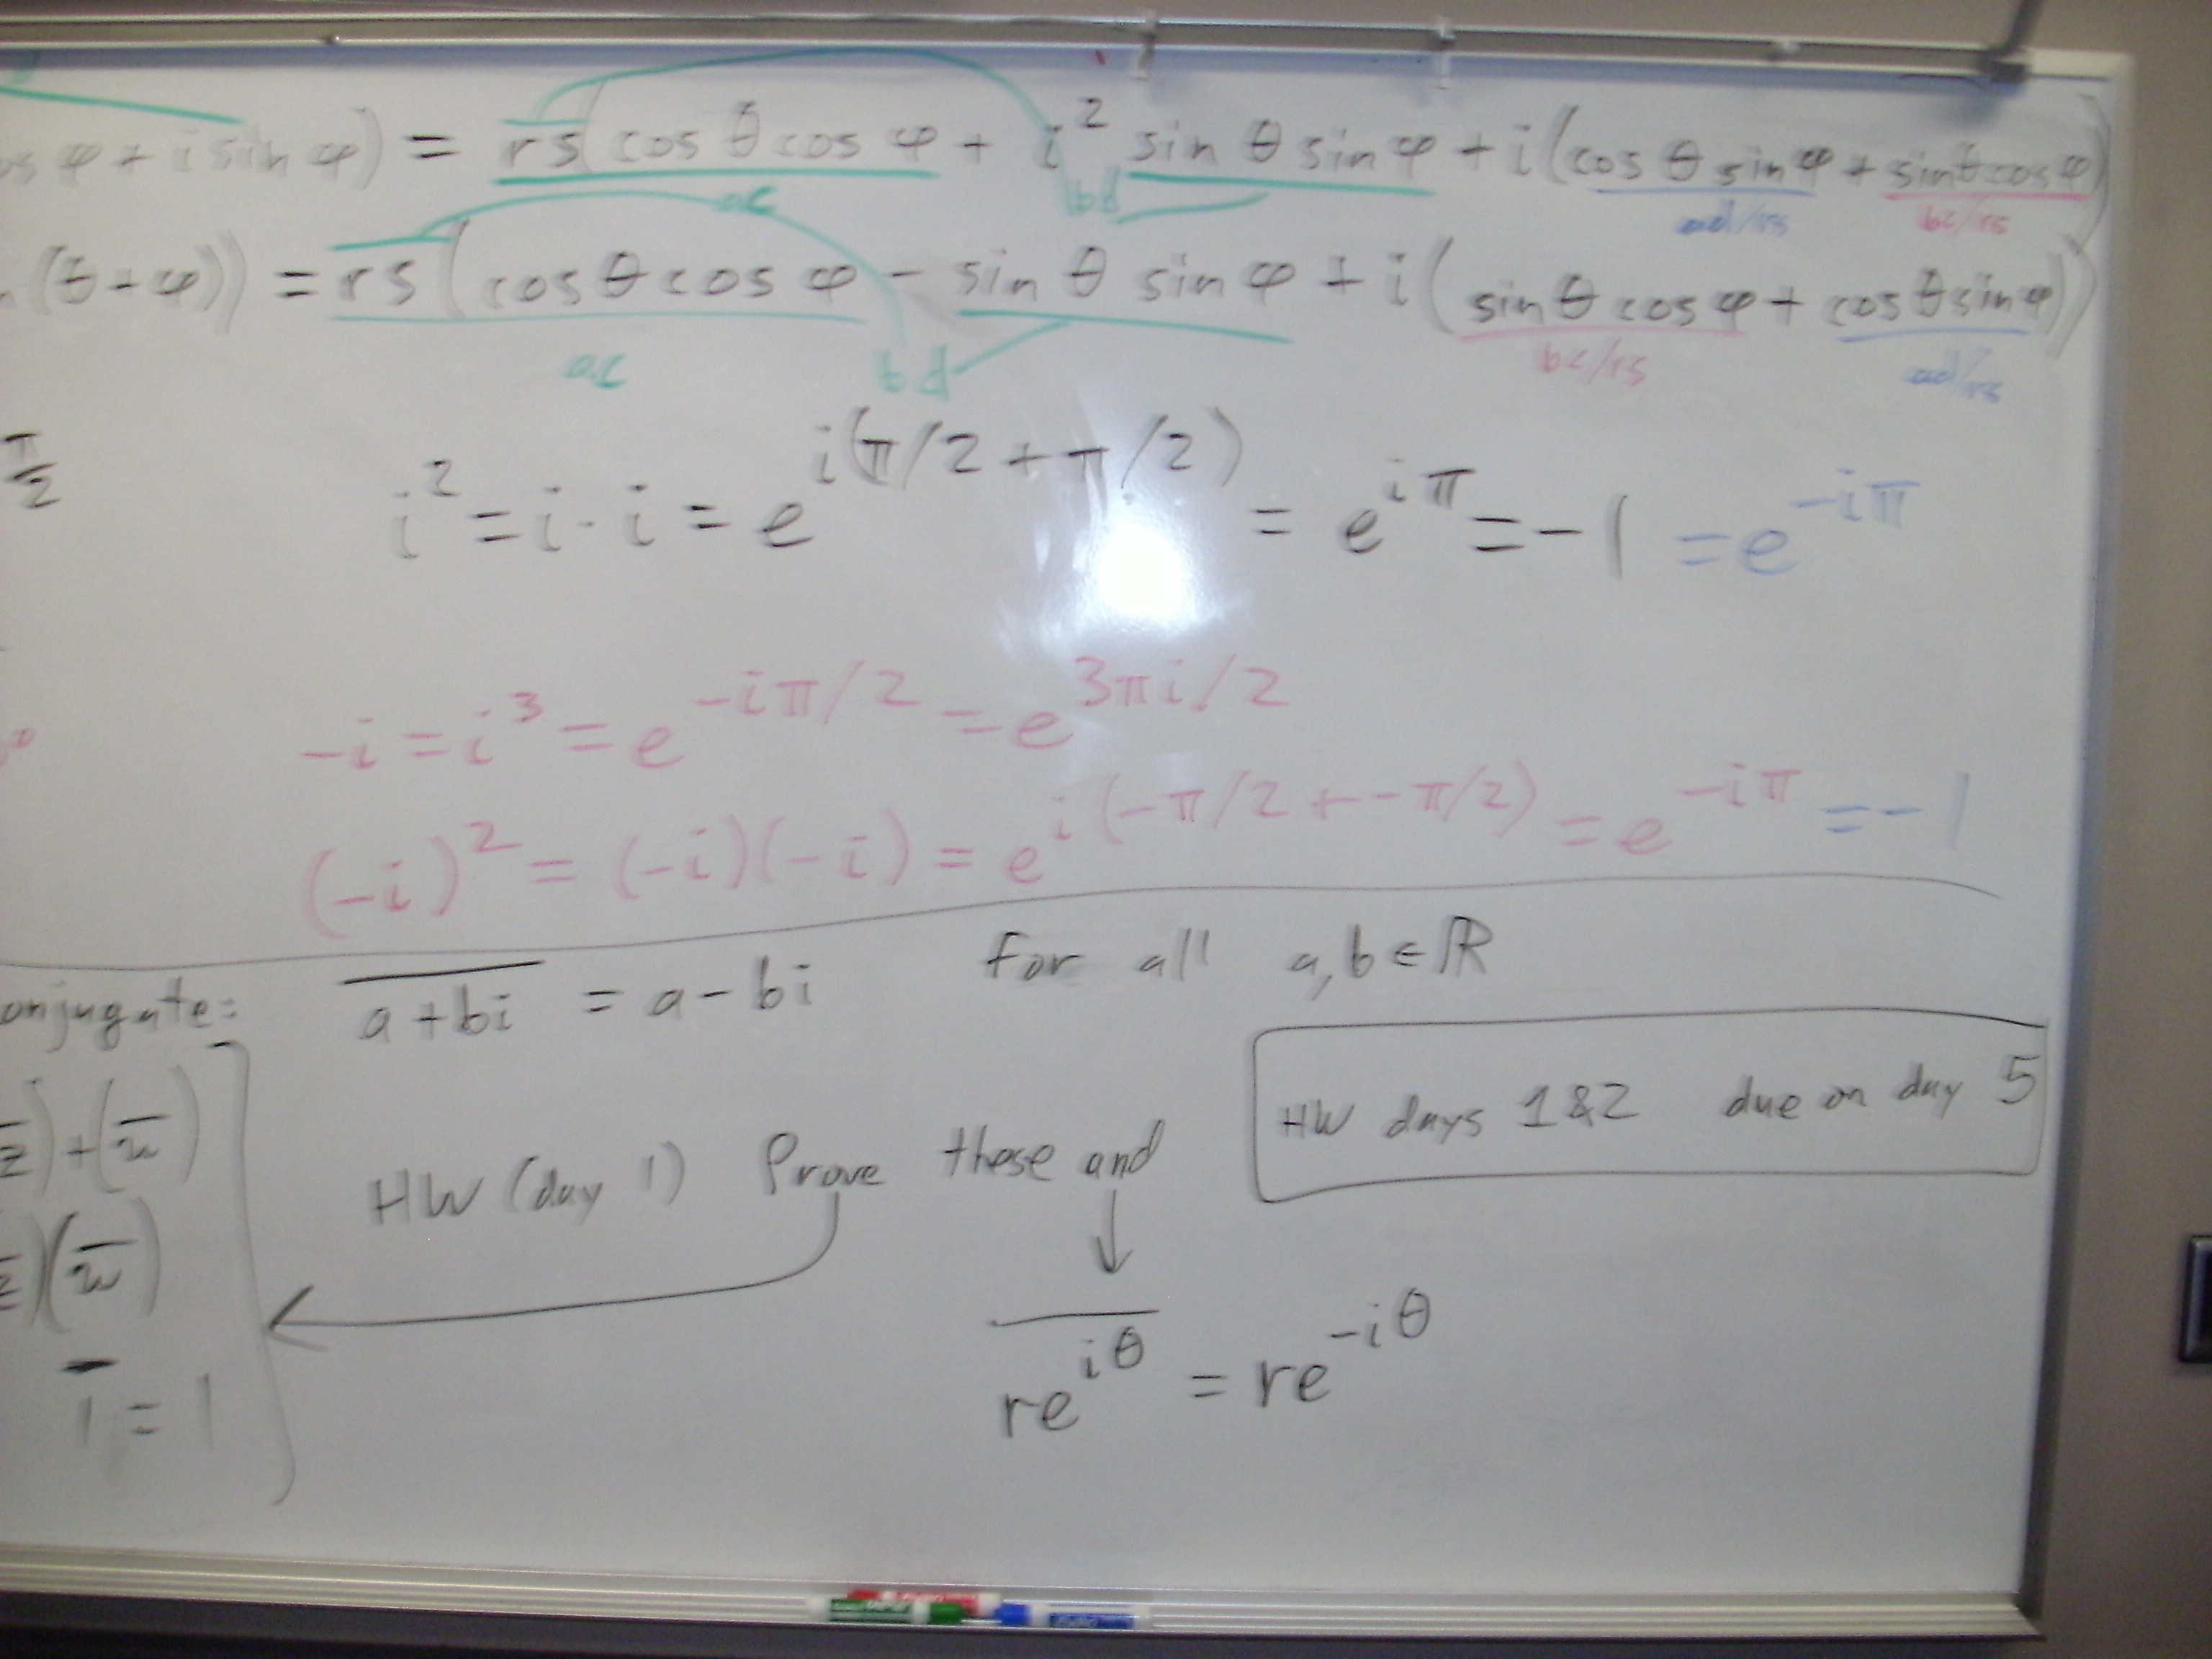 os φ + i sin φ) = rs(cos θ cos φ + i² sin θ sin φ + i(cos θ sin φ + sin θ cos φ)
ac bd ad/rs bc/rs
(θ + φ)) = rs(cos θ cos φ - sin θ sin φ + i(sin θ cos φ + cos θ sin φ))
ac bd bc/rs ad/rs
π/2 i² = i · i = e^{i(π/2 + π/2)} = e^{iπ} = -1 = e^{-iπ}
-i = i³ = e^{-iπ/2} = e^{3πi/2}
(-i)² = (-i)(-i) = e^{i(-π/2 + -π/2)} = e^{-iπ} = -1
onjugate: \overline{a+bi} = a - bi for all a, b ∈ ℝ
HW days 1&2 due on day 5
\overline{z}) + (\overline{w})
HW (day 1) Prove these and
\overline{z})(\overline{w})
\overline{re^{iθ}} = re^{-iθ}
\overline{1} = 1